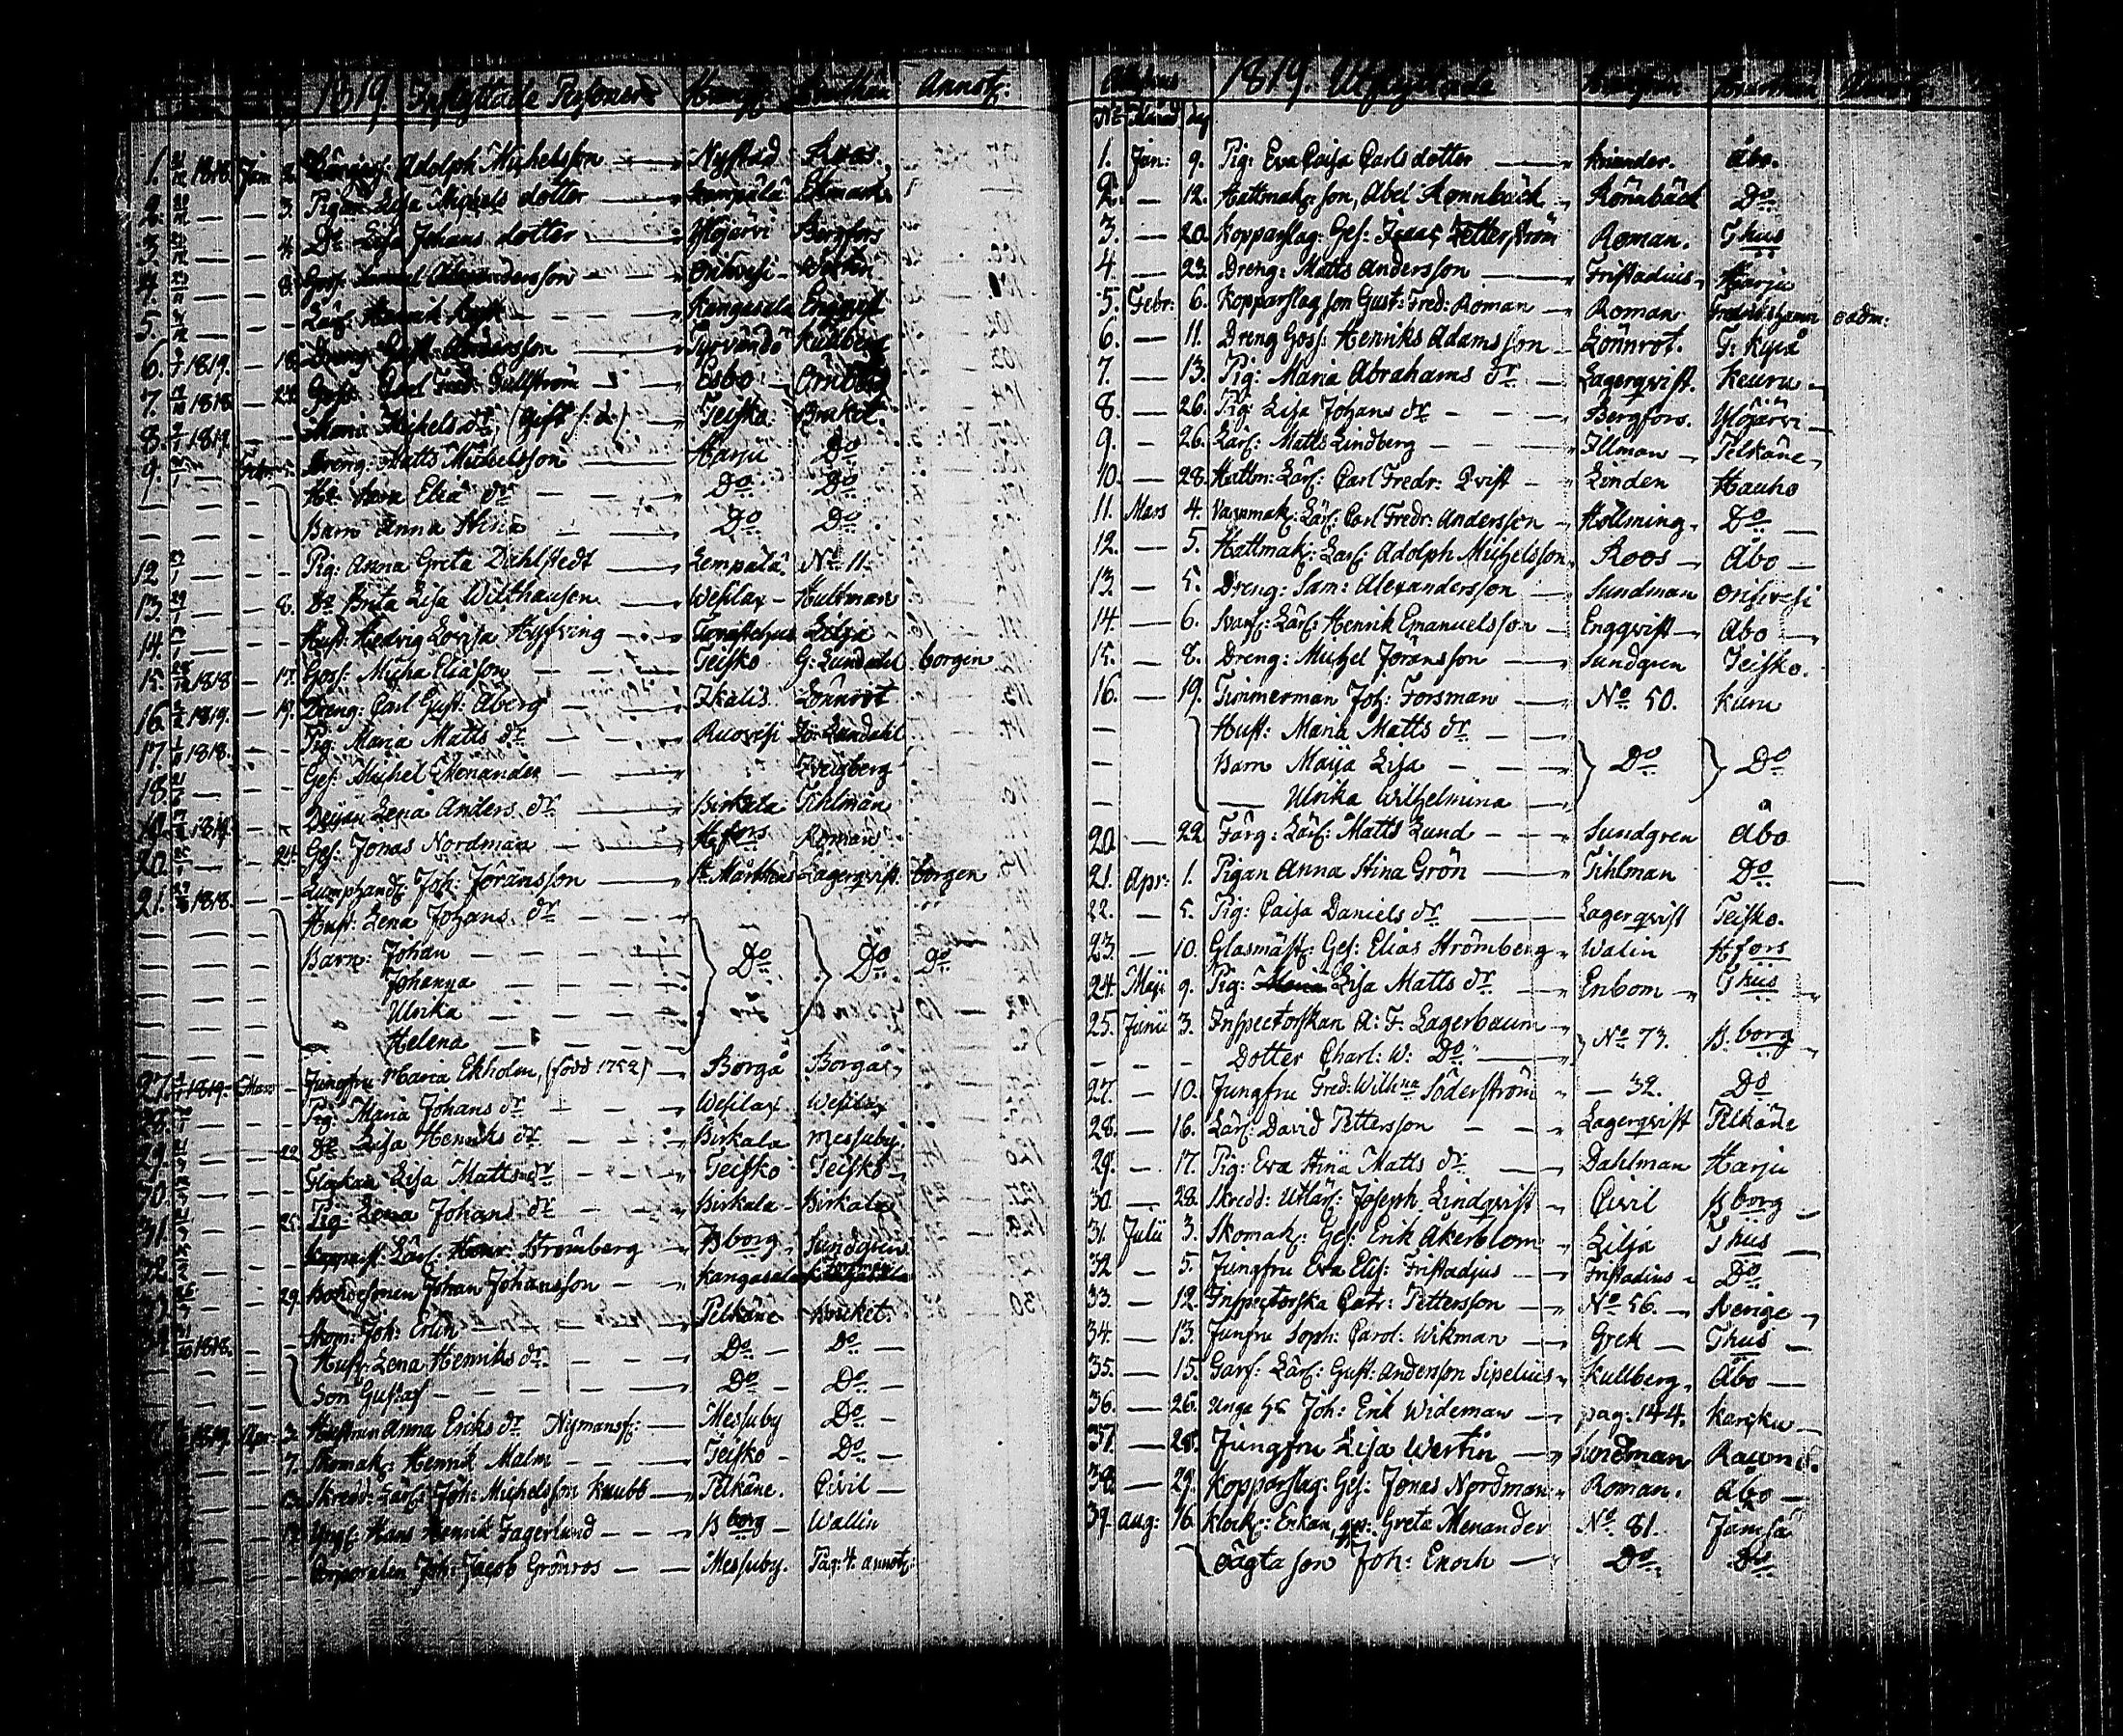 1819 Inflyttade Personer Annot:
1. 1818 Jan: 2. Adolph Michelsson Nystad Roos
2. 3. Pigan Lisa Michels dotter Lempälä Ekmark
3. 4. Do Lisa Johans dotter Ylöjärvi Bergfors
4. 8. Goss: Alexandersson Orihvesi
5. Lärl: Henrik Kangasala Engqvist
6. 1819. 18. Dreng: Andersson Tyrvändö Kullberg
7. 1818 Goss: Carl Fred: Gullström Esbo Örnberg
8. 1819 Maria Michels dr (Gift) Teisko Bruket
9. Febr: Dreng: Matts Michelsson Harju Do
Hu: Elia dr Do Do
Barn Anna Stina Do Do
12. Pig: Anna Greta Dahlstedt Lempälä No 11.
13. 8. Do Brita Lisa Wilthausen Wesilax Hultman
14. Hust: Hedvig Lovisa Hysfving Tavastehus Lilja
15. 1818 17. Goss: Micha Eliasson Teisko G: Lundahl borgen
16. 1819. 19. Dreng: Carl Gust: Åberg Ikalis Lönnrot
17. 1818. Pig: Maria Matts dr Ruovesi Lundahl
18. Ges: Michel Menander Zweigberg
19. 1819. Lena Anders dr Birkala Tihlman
20. 24. Ges: Jonas Nordman Hfors Roman
21. 1818. Lumphandl: Joh: Joransson St Mårthens Lagerqvist borgen
Hust: Lena Johans dr
Barn: Johan Do Do Do
Johanna
Ulrika
Helena
27. 1819 Mars Jungfru Maria Ekholm, (född 1752) Borgå Borgå
28. Pig: Maria Johans dr Wesilax Wesilax
29. 22. Do Lisa Henriks dr Birkala Messuby
30. Flickan Lisa Matts dr Teisko Teisko
31. 25. Pig: Lena Johans dr Birkala Birkala
32. Lärl: Strömberg Bborg Sundgren
33. 29. Bondesonen Johan Johansson Kangasala
34. 1818. Skom: Joh: Erlin Pelkäne Bruket
Hust: Lena Henriks dr Do Do
Son Gustaf Do Do
1819 Apr: 3. Hustrun Anna Eriks dr Nymansf: Messuby Do
7. Skomak: Henrik Malm Teisko Do
Skredd: Lärl: Joh: Michelsson Knubb Pelkäne. Civil
Hans Henrik Fagerlund Bborg Wallin
Corporalen Joh: Jacob Grönros Messuby. Pag: 4. annot:
1819. Utflyttade
No Månad dag
1. Jan: 9. Pig: Eva Caisa Carls dotter Kriander. Åbo.
2. 12. Hattmak: son, Abel Rönnbäck Rönnbäck Do
3. 20. Kopparslag: Ges: Isaac Zetterström Roman. Thus
4. 23. Dreng: Matts Andersson Fristadius Harju
5. Febr: 6. Kopparslag son Gust: Fred: Roman Roman Fredrikshamn
6. 11. Dreng Goss: Henriks Adamsson Lönnrot. F: Kyrå
7. 13. Pig: Maria Abrahams dr Lagerqvist. Keuru
8. 26. Pig: Lisa Johans dr Bergfors. Ylöjärvi
9. 26. Lärl: Matts Lindberg Illman Pelkäne
10. 28. Hattm: Lärl: Carl Fredr: Qvist Linden Hauho
11. Mars 4. Vannmak: Lärl: Carl Fredr: Andersson Hollming Do
12. 5. Hattmak: Lärl: Adolph Michelsson Roos Åbo
13. 5. Dreng: Sam: Alexandersson Sundman Orihvesi
14. 6. Svarf: Lärl: Henrik Emanuelsson Engqvist Åbo
15. 8. Dreng: Michel Joransson Sundgren Teisko.
16. 19. Timmerman Joh: Forsman No 50. Kuru
Hust: Maria Matts dr
Barn Maija Lisa Do Do
Ulrika Wilhelmina
20. 22. Färg: Lärl: Matts Lund Sundgren Åbo
21. Apr: 1. Pigan Anna Stina Grön Tihlman Do
22. 5. Pig: Caisa Daniels dr Lagerqvist Teisko.
23. 10. Glasmäst: Ges: Elias Strömberg Walin Hfors
24. Maji 9. Pig: Lisa Matts dr Enbom Thus
25. Junii 3. Inspectorskan A: F: Lagerbaum No 73. Bborg
Dotter Charl: W: Do
27. 10. Jungfru Fred: Willhna Söderström 32. Do
28. 16. Lärl: David Pettersson Lagerqvist Pelkäne
29. 17. Pig: Eva Stina Matts dr Dahlman Harju
30. 28. Skredd: Utlärl: Joseph Lindqvist Civil Bborg
31. Julii 3. Skomak: Ges: Erik Åkerblom Lilja Thus
32 5. Jungfru Eva Elis: Fristadius Fristadius Do
33. 12. Inspectorska Catr: Pettersson No 56. Nerige
34. 13. Junfru Soph: Carol: Wikman Grek Thus
35. 15. Garf: Lärl: Gust: Andersson Sipelius Kullberg Åbo
36. 26. Unga Hr Joh: Erik Wideman pag: 144. Karcku
37. 28. Jungfru Lisa Wertin Sundman Raumo.
38. 29. Kopparslag: Ges: Jonas Nordman Roman. Åbo
39. Aug: 16. Klock: Enkan, Greta Menander No 81. Jämsä
oägta son Joh: Enoch Do Do